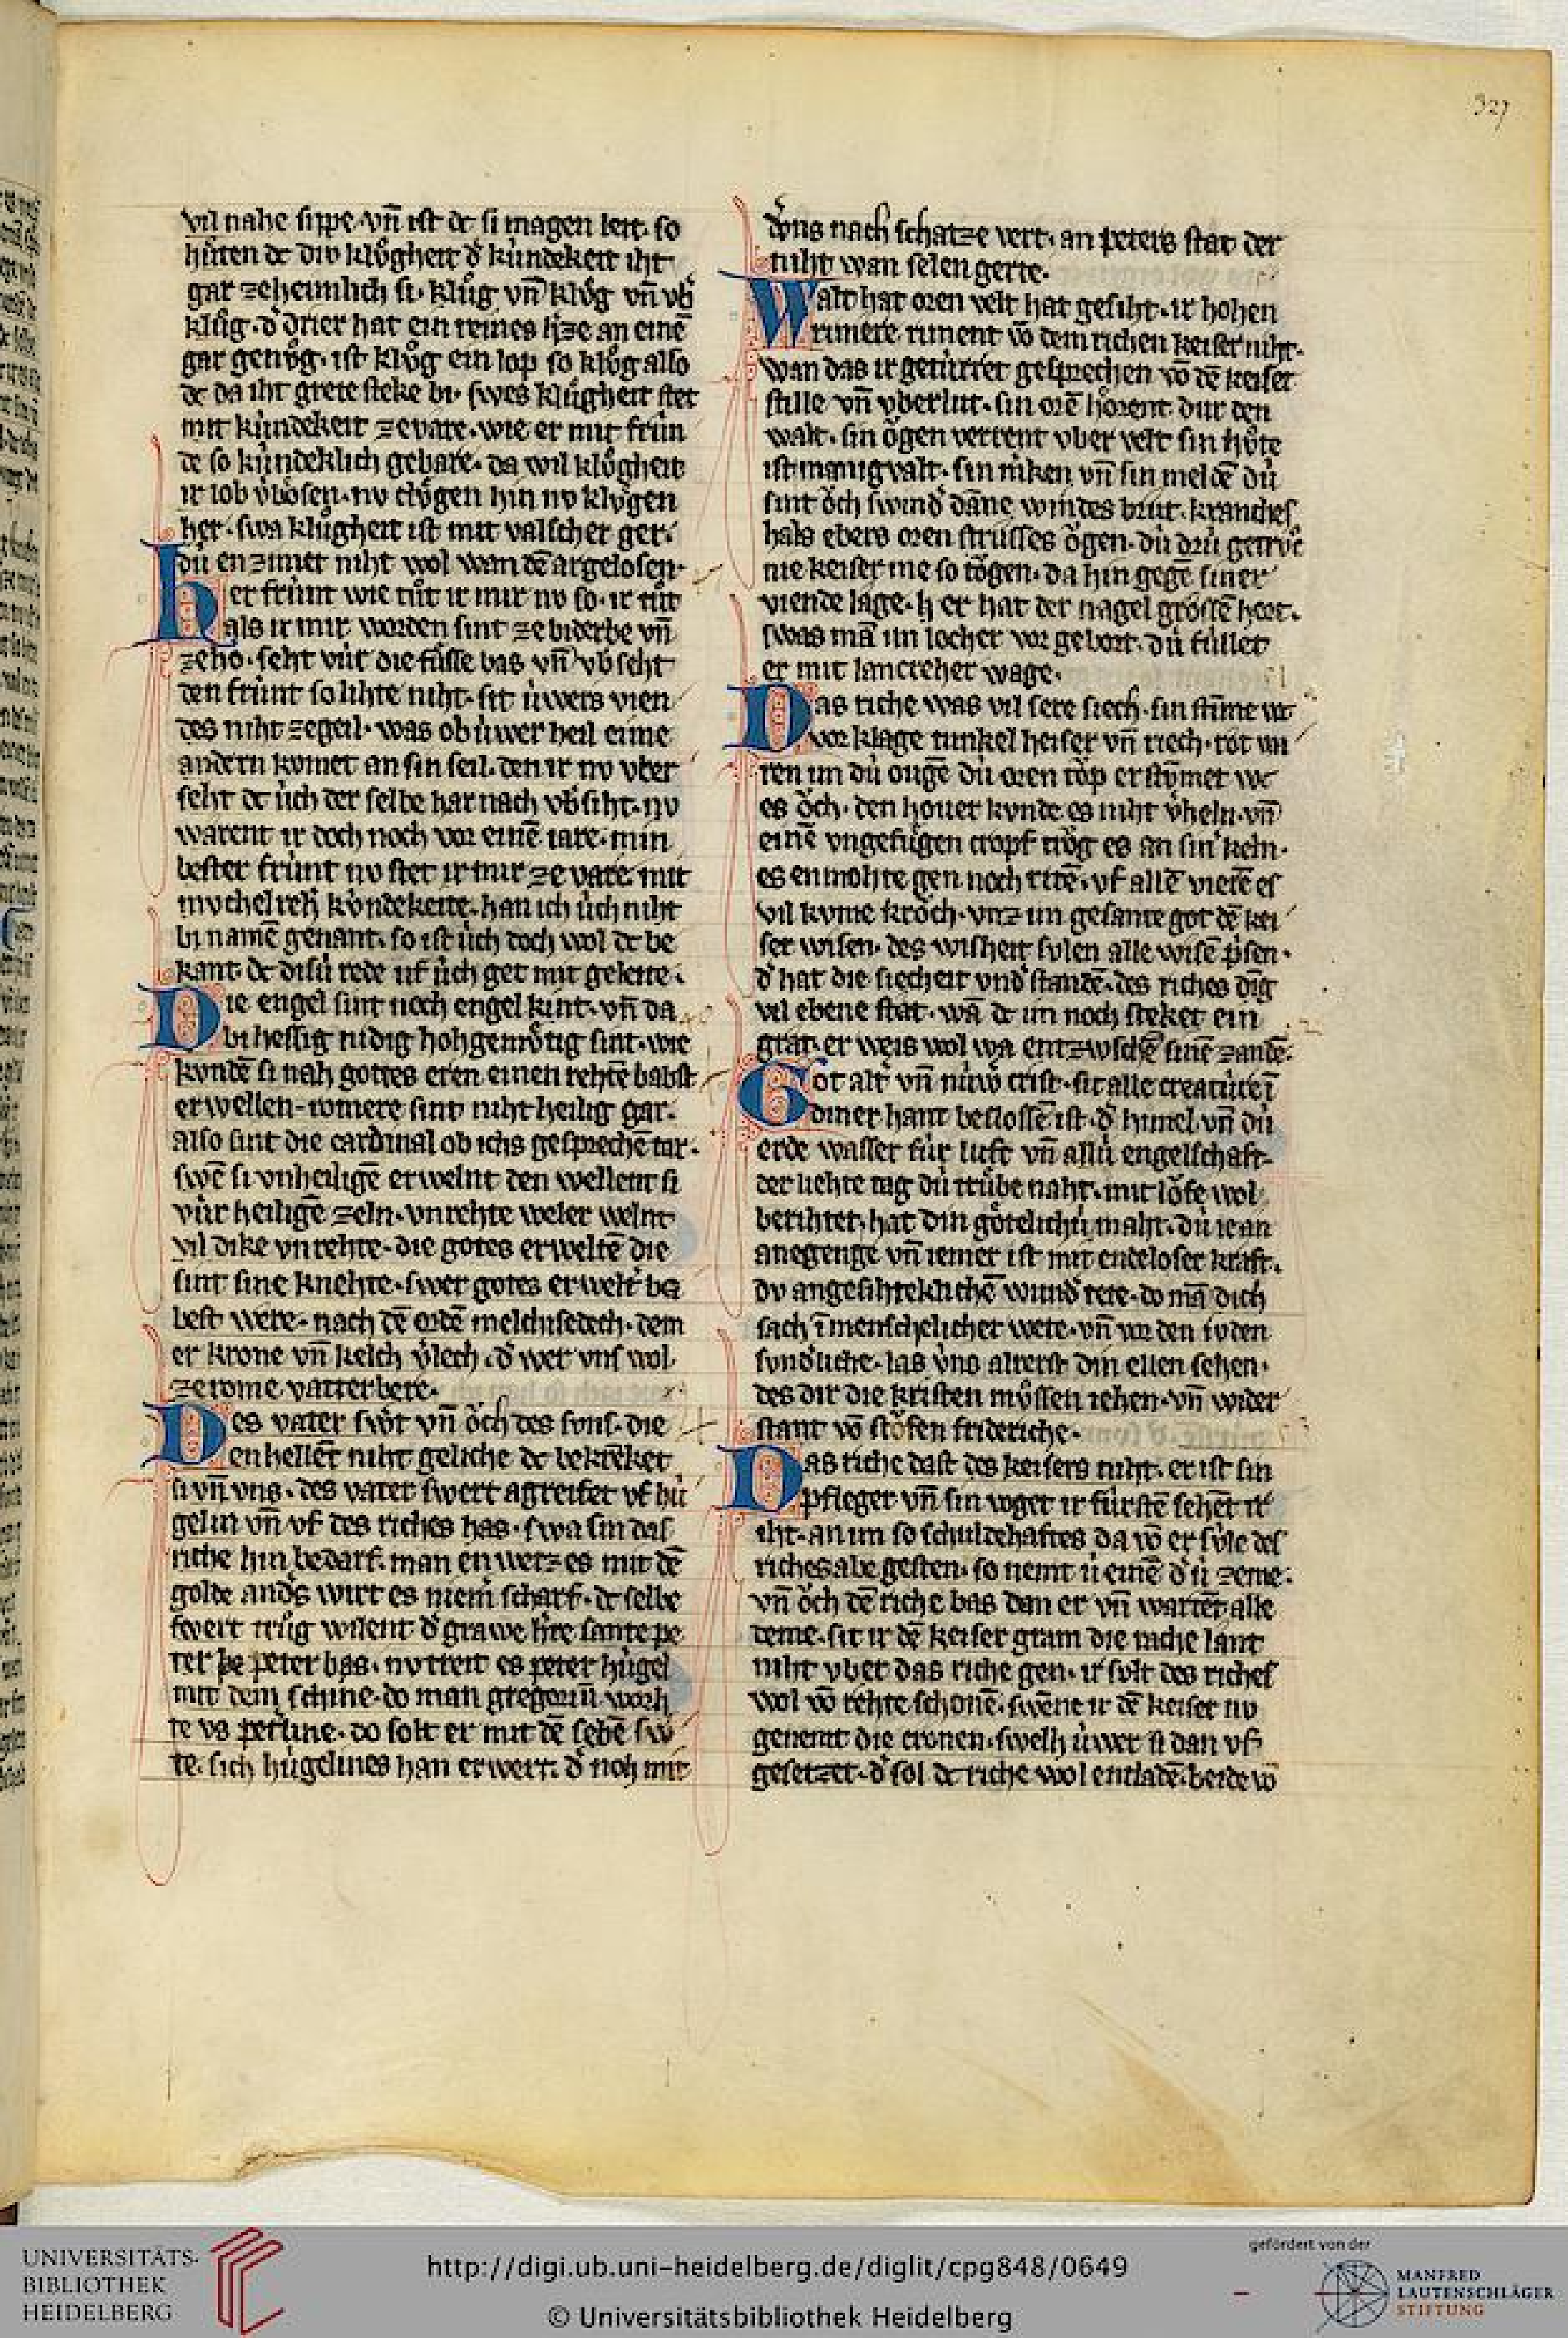 327
vil nahe sippe. vn̄ ist dc si magen leit. so
hu̍ten dc div klůgheit d̕ ku̍ndekeit iht
gar ze heimlich si. klůg vn̄ klůg vn̄ vb̕
klůg. d̕ drier hat ein reines h̕ze an einē
gar genůg. ist klůg ein lop so klůg also
dc da iht grete steke bi. swes klůgheit stet
mit ku̍ndekeit ze vare. wie er mit fru̍n
de so ku̍ndeklich gebare. da wil klůgheit
ir lob v̕bosen. nv clůgen hin nv klůgen
her. swa klůgheit ist mit valscher ger.
du̍ enzimet niht wol wan dē argelosen.
her fru̍nt wie tůt ir mir nv so. ir tůt
als ir mir worden sint ze biderbe vn̄
ze ho. seht vu̍r die fu̍sse bas vn̄ vb̕seht
den fru̍nt so lihte niht. sit u̍wers vien
des niht ze geil. was ob u̍wer heil eime
andern komet an sin seil. den ir nv vber
seht dc u̍ch der selbe har nach vb̕siht. nv
warent ir doch noch vor einē iare. min
bester fru̍nt nv stet ir mir ze vare. mit
mvchelreh̕ ku̍ndekeite. han ich u̍ch niht
bi namē genant. so ist u̍ch doch wol dc be
kant. dc disu̍ rede uf u̍ch get mit geleite.
Die engel sint noch engel kint. vn̄ da
bi hessig nidig hohgemůtig sint. wie
kvndē si nah gottes eren einen rehtē babst
erwellen. romere sint niht heilig gar.
also sint die cardinal ob ichs gesprechē tar.
swē si vnheiligē erwelnt den wellent si
vu̍r heiligē zeln. vnrehte weler welnt
vil dike vnrehte. die gotes erweltē die
sint sine knehte. swer gotes erwelt̕ ba
best were. nach dē ordē melchisedech. dem
er krone vn̄ kelch v̕lech. d̕ wer vns wol
ze rome vatterbere.
Des vater swět vn̄ ǒch des svns. die
en hellēt niht geliche dc bekrēket
si vn̄ vns. des vater swert agreifet vf hu̍
gelin vn̄ vf des riches has. swa sin das
riche hin bedarf. man enwetz es mit dē
golde and̕s wirt es niem̄ scharf. dc selbe
swert trůg wilent d̕ grawe h̕re sante pe
ter pe peter bas. nv treit es peter hu̍gel
mit dem schine. do man gregoriū worh
te vs perline. do solt er mit dē sebē sw̕
te. sich hu̍gelines han erwert. d̕ noh mit
v̕ns nach schatze vert. an peters stat der
niht wan selen gerte.
Walt hat oren velt hat gesiht. ir hohen
rvnere. runent vō dem richen keiser niht.
wan das ir getu̍rret gesprechen vō dē keiser
stille vn̄ vberlut. sin orē hörent dur den
walt. sin ǒgen verrent vber velt sin hůte
ist manigvalt. sin ru̍ken vn̄ sin meldē du̍
sint ǒch swind̕ dāne windes brut. kraniches
hals ebers oren strusses ǒgen. du̍ dru̍ getrůc
nie keiser me so tǒgen. da hin gegē siner
viende lage. h̕ er hat der nagel grössē hort.
swas mā im locher vor gebort. du̍ fu̍llet
er mit lancreher wage.
Das riche was vil sere siech. sin stīme wc
vor klage tunkel heiser vn̄ riech. rot wa
ren im du̍ ougē du̍ oren tǒp erstv̄met wc
es ǒch. den hover kvnde es niht v̕heln. vn̄
einē vngefu̍gen cropf trůg es an sin̕ keln.
es enmohte gen noch ritē. vf allē vierē es
vil kvme kröch. vnz im gesante got dē kei
ser wisen. des wisheit svlen alle wisē p̕sen.
d̕ hat die siecheit vnd̕standē. des riches dīg
vil ebene stat. wā dc im noch steket ein
grat. er weis wol wa entzwschē sinē zandē.
Got alt̕ vn̄ nu̍w̕ crist. sit alle creatu̍re ī
diner hant beslossē ist. d̕ himel vn̄ du̍
erde wasser fu̍r luft vn̄ allu̍ engelschaft.
der liehte tag du̍ tru̍be naht. mit lǒfe wol
berihtet. hat din götelichu̍ maht. du̍ ie an
anegenge vn̄ iemer ist mit endeloser kraft.
dv angesihteklichē wund̕ tete. do mā dich
sach ī menschelicher wete. vn̄ vor den ivden
svnd̕liche. las v̍ns alrerst din ellen sehen.
des dir die kristen mu̍ssen iehen. vn̄ wider
stant vō stǒfen friderichе.
Das riche dast des keisers niht. er ist sin
pfleger vn̄ sin voget ir fu̍rstē sehēt ir
iht. an im so schuldehaftes da vō er su̍le des
riches abe gesten. so nemt u̍ einē d̕ u̍ zeme.
vn̄ ǒch dē riche bas dan er vn̄ wartēt alle
deme. sit ir dē keiser gram die rache lant
niht vber das riche gen. ir solt des riches
wol vō rehte schonē. swēne ir dē keiser nv
genemt die cronen. swelh u̍wer si dan vf
gesetzet. d̕ sol dc riche wol entladē. beide vō
UNIVERSITÄTS-
BIBLIOTHEK
HEIDELBERG
http://digi.ub.uni-heidelberg.de/diglit/cpg848/0649
© Universitätsbibliothek Heidelberg
gefördert von der
MANFRED
LAUTENSCHLÄGER
STIFTUNG